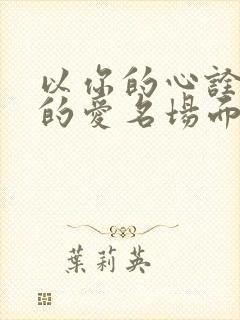 以你的心詮
的愛名場面
葉莉英